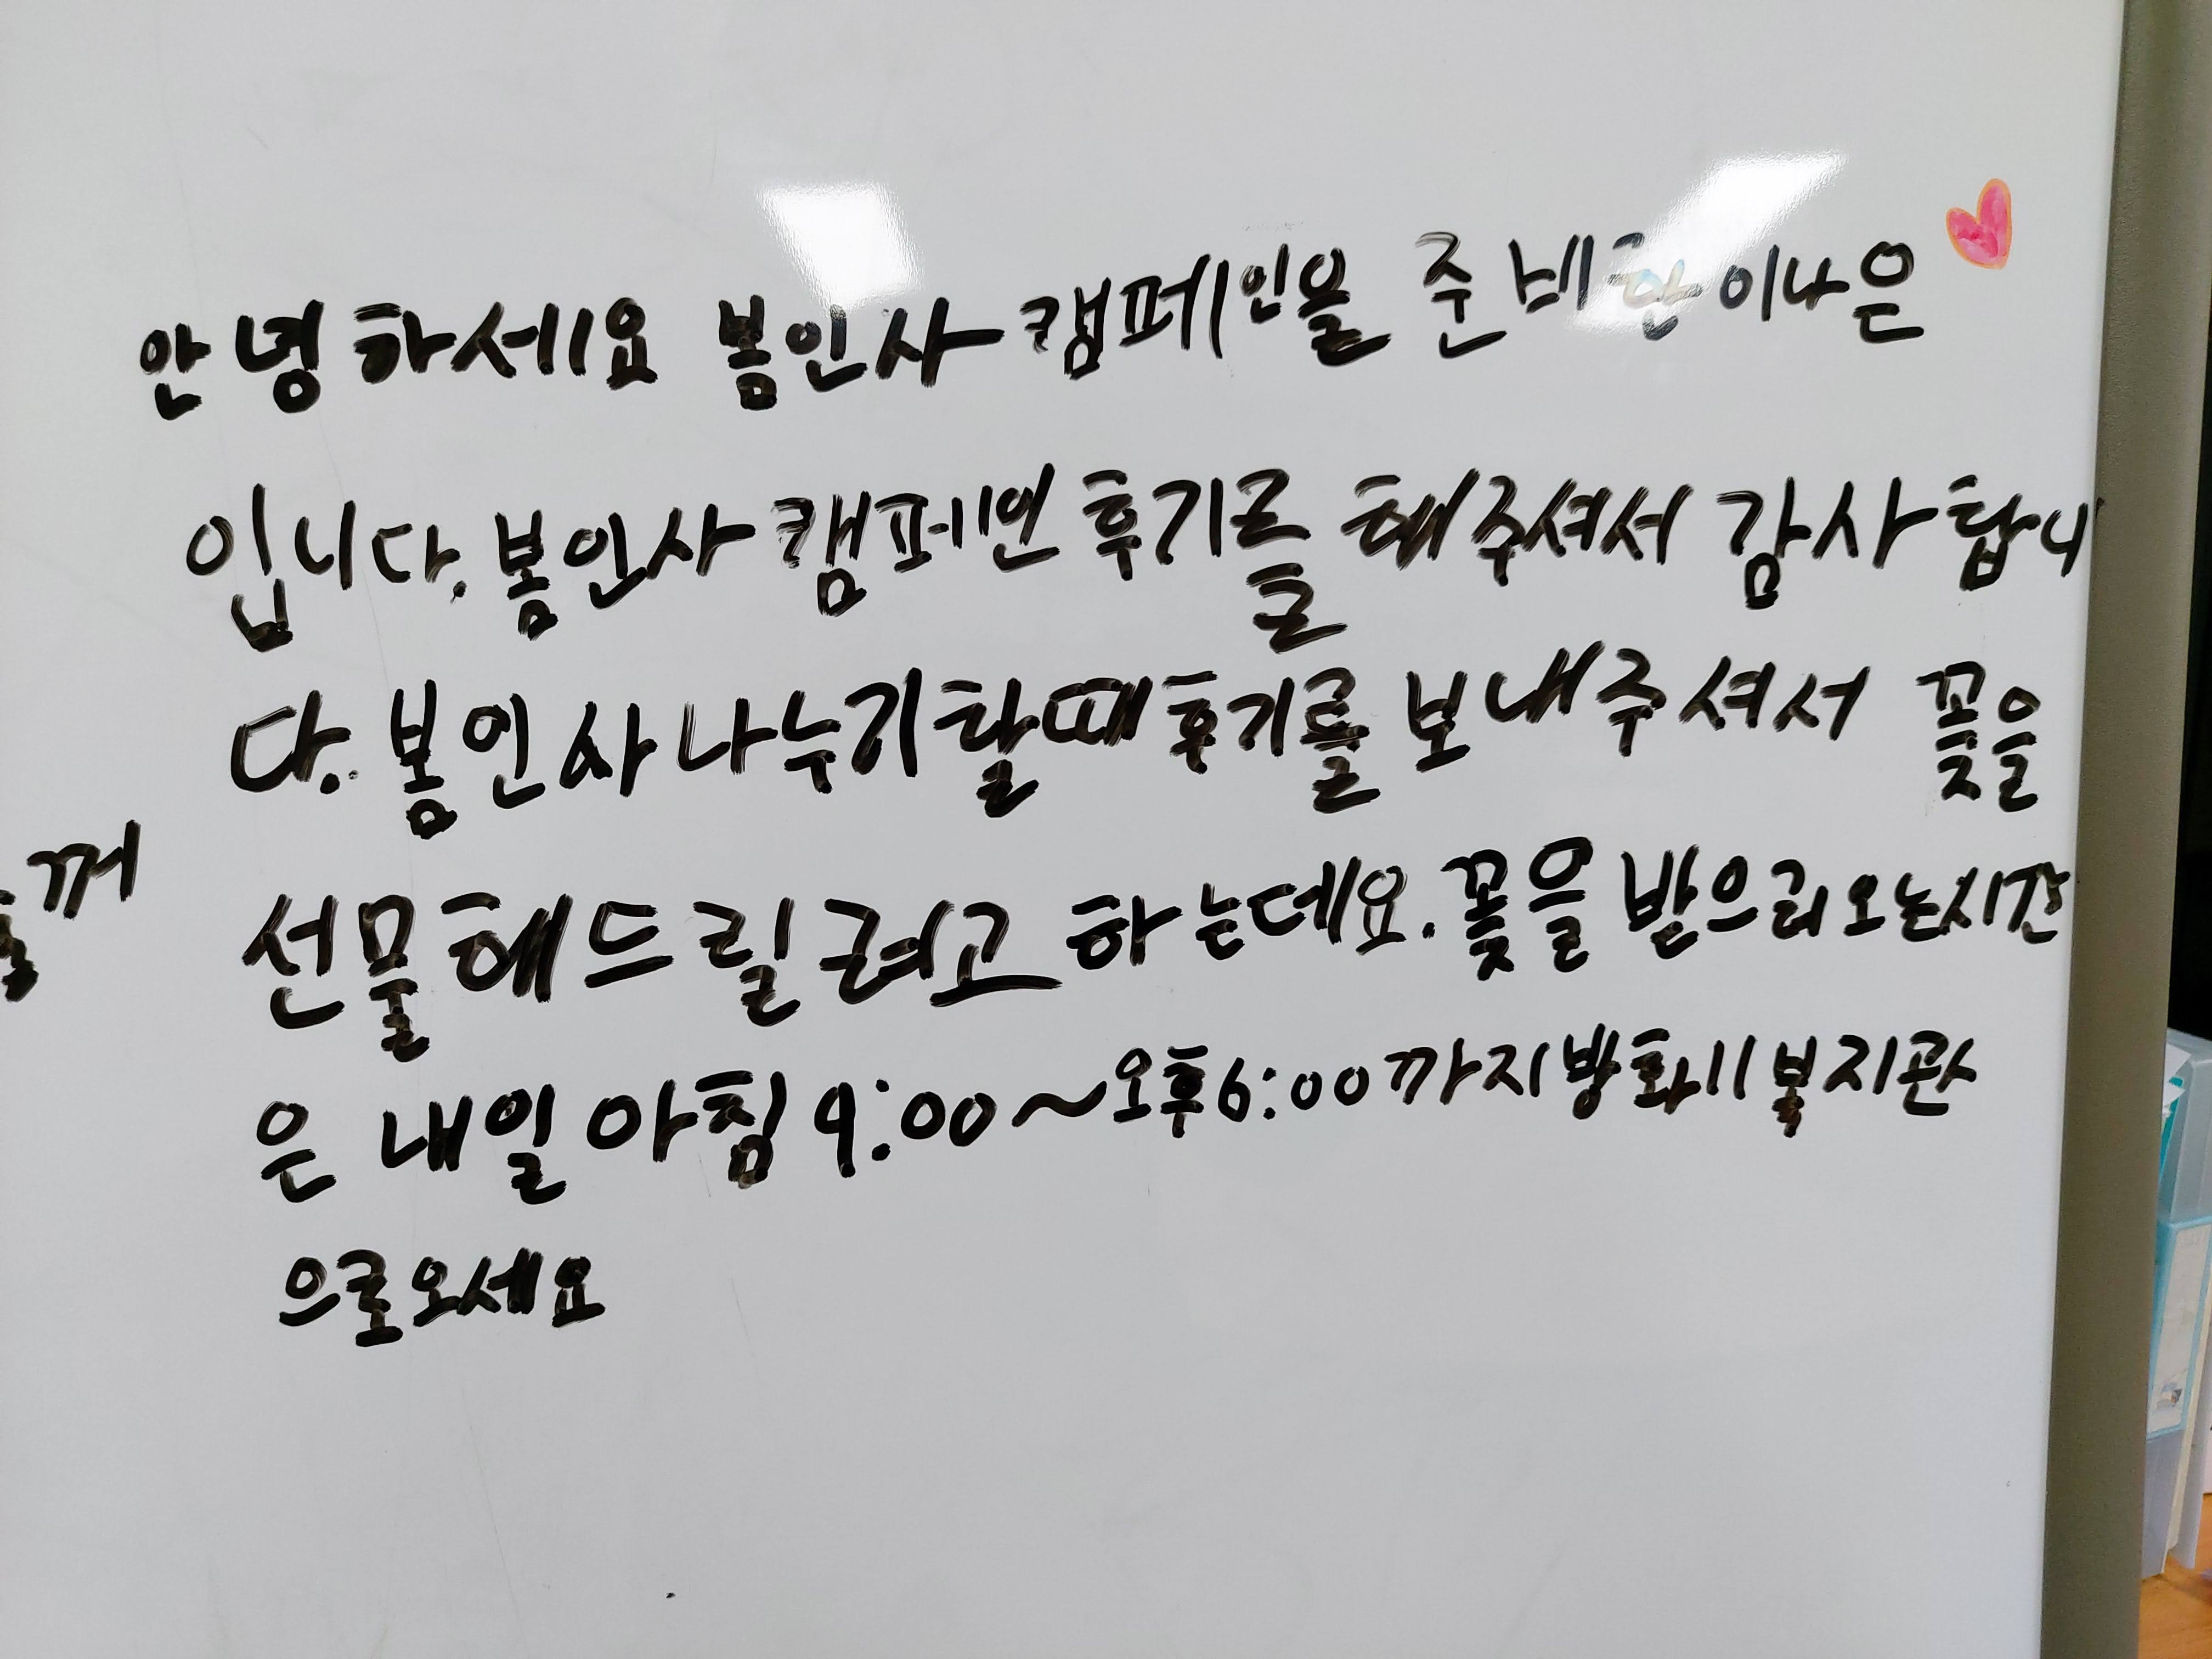 안녕하세요 봄인사 캠페인을 준비한 이나은
입니다. 봄인사 캠페인 후기를 해주셔서 감사합니
다. 봄인사 나누기 할때 후기를 보내주셔서 꽃을
꺼
선물해드릴려고 하는데요. 꽃을 받으러 오는시간
은 내일 아침 9:00~오후6:00까지 방화11복지관
으로오세요